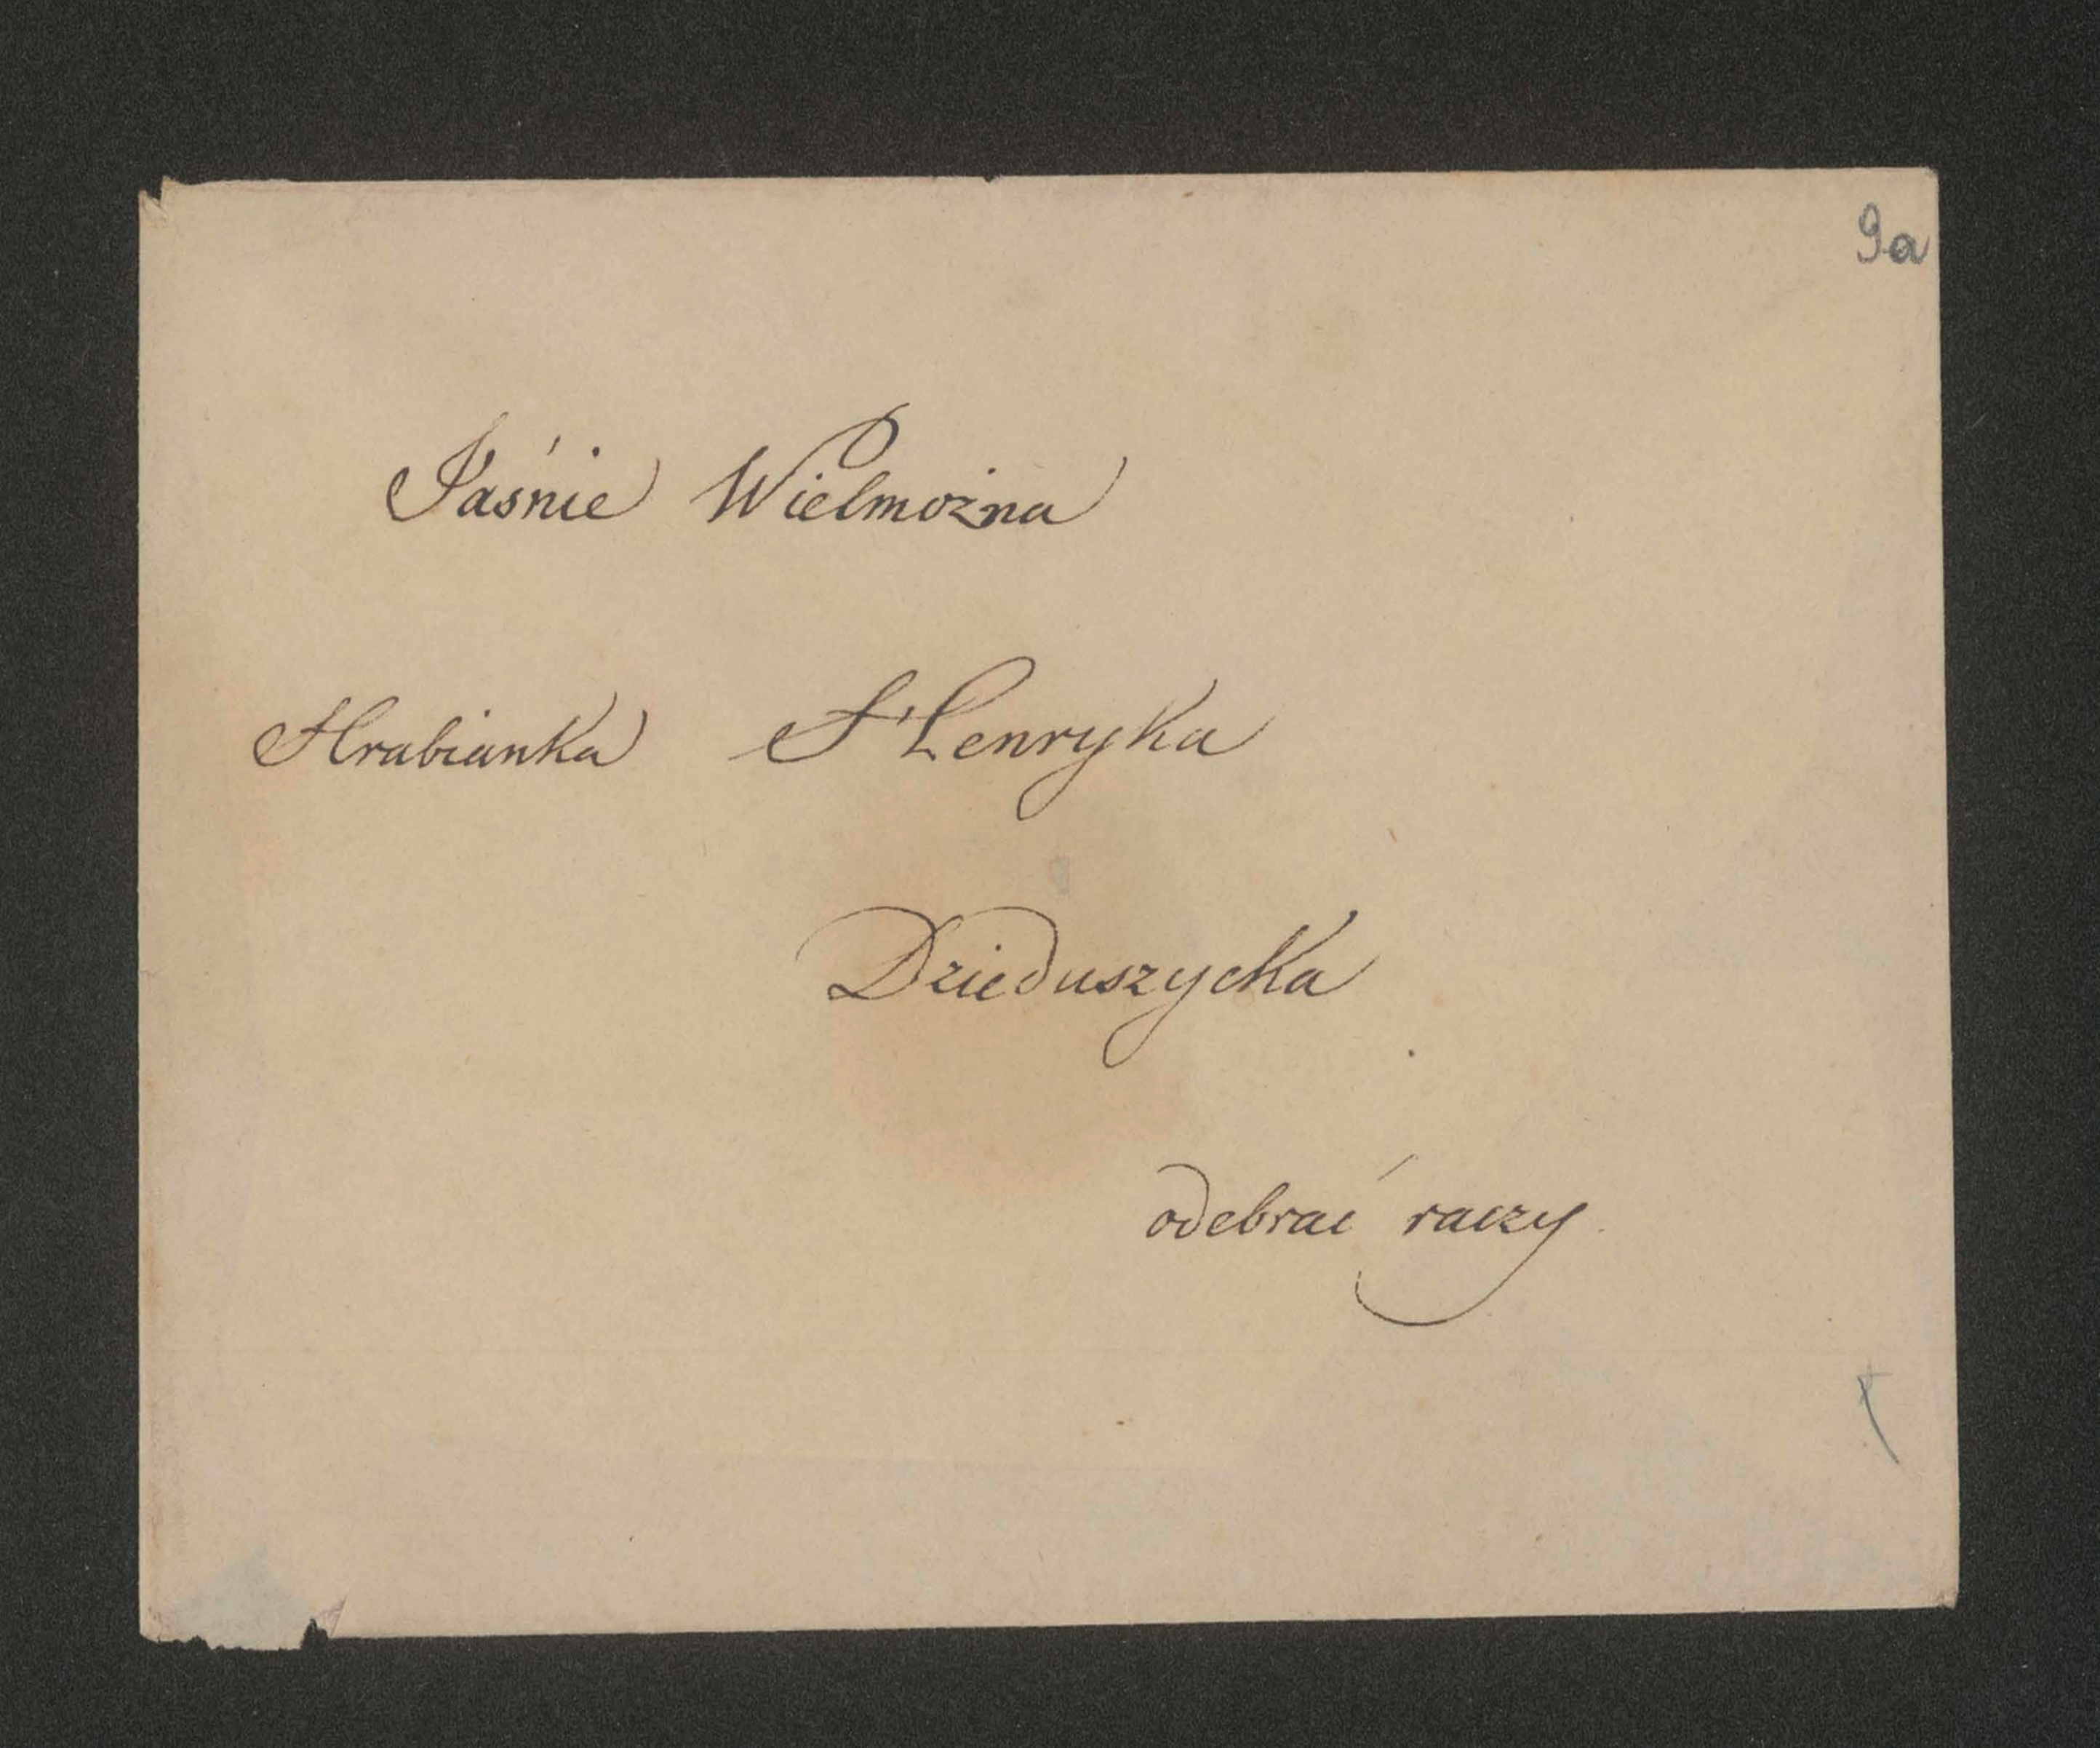 9a
Jaśnie Wielmożna
Hrabianka Henryka
Dzieduszycka
odebrać raczy